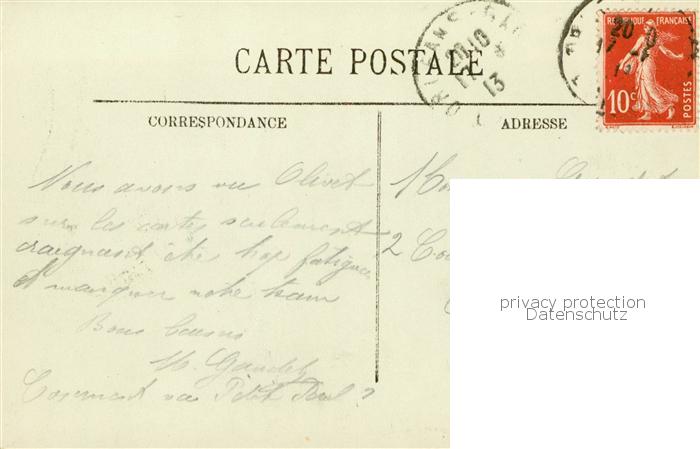 CARTE POSTALE
ORLEANS GARE
20 10
17
13
20
17
REPUBLIQUE FRANÇAISE
10c
POSTES
CORRESPONDANCE
ADRESSE
Nous avons vu Olivet
sur les cartes seulement
craignant être trop fatigués
et manquer notre train
Bons baisers
M. Gaudet
Comment va Petit Paul ?
2
privacy protection
Datenschutz